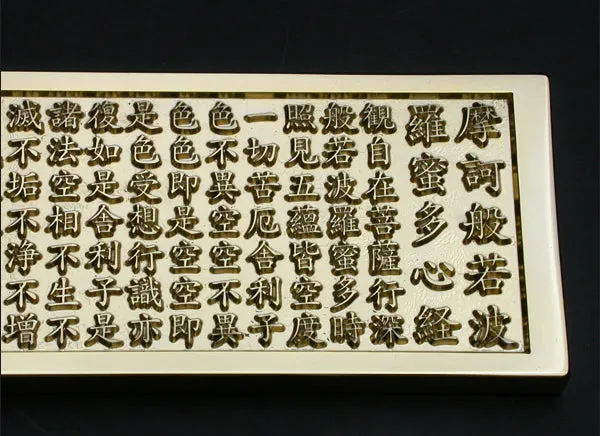 摩訶般若波
羅蜜多心経
観自在菩薩行深
般若波羅蜜多時
照見五蘊皆空度
一切苦厄舎利子
色不異空空不異
色色即是空空即
是色受想行識亦
復如是舎利子是
諸法空相不生不
滅不垢不浄不増